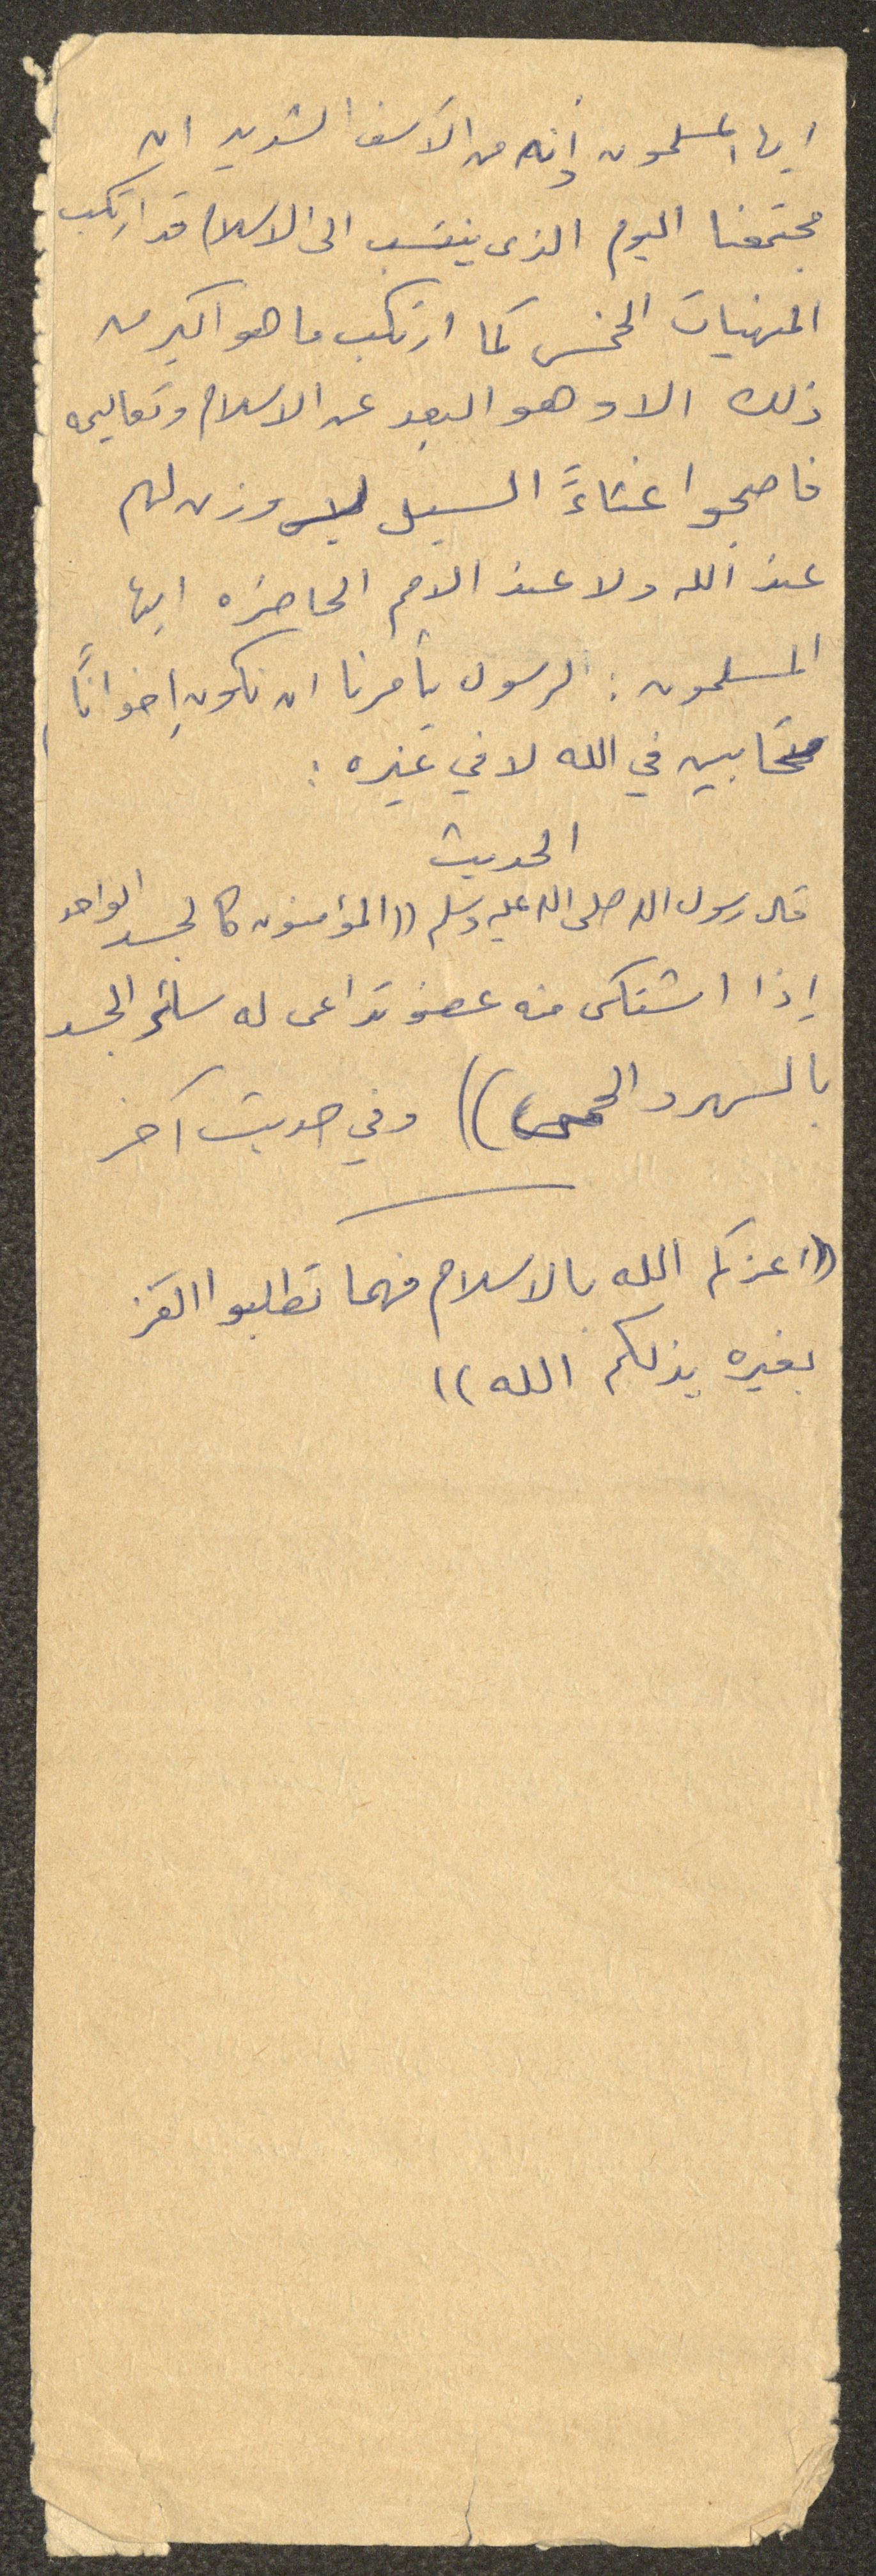 ايها المسلمون وأنه من الأسف الشديد ان
مجتمعنا اليوم الذى ينتسب الى الاسلام قد ارتكب
المنهيات الخمس كما ارتكب ما هو اكبر من
ذلك الا وهو البعد عن الاسلام وتعاليمه
فاصبحوا غثاءً السيل ليس وزن لهم
عند الله ولا عند الامم الحاضره ايها
المسلمون : الرسول يأمرنا ان نكون إخوانًا
متحابين في الله لا في غيره :
الحديث
قال رسول الله صلى الله عليه وسلم ((المؤمنون كالجسد الواحد
إذا اشتكى منه عضو تداعى له سائر الجسد
بالسهر والحمى)) وفي حديث آخر
((اعزكم الله بالاسلام فهما تطلبوا العز
بغيره يذلكم الله))